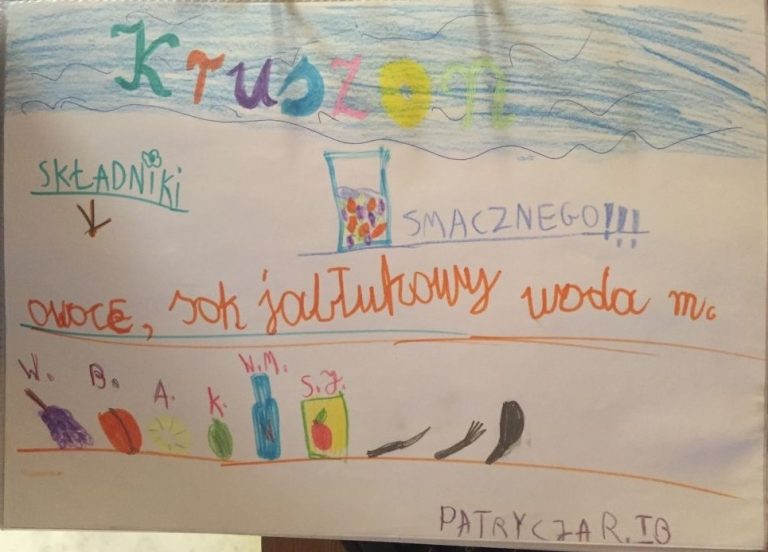 Kruszon
SKŁADNiKi
SMACZNEGO!!!
owoce, sok jabłukowy woda m.
W. B. A. K. W.M. S.J.
PATRYCJA R. IB